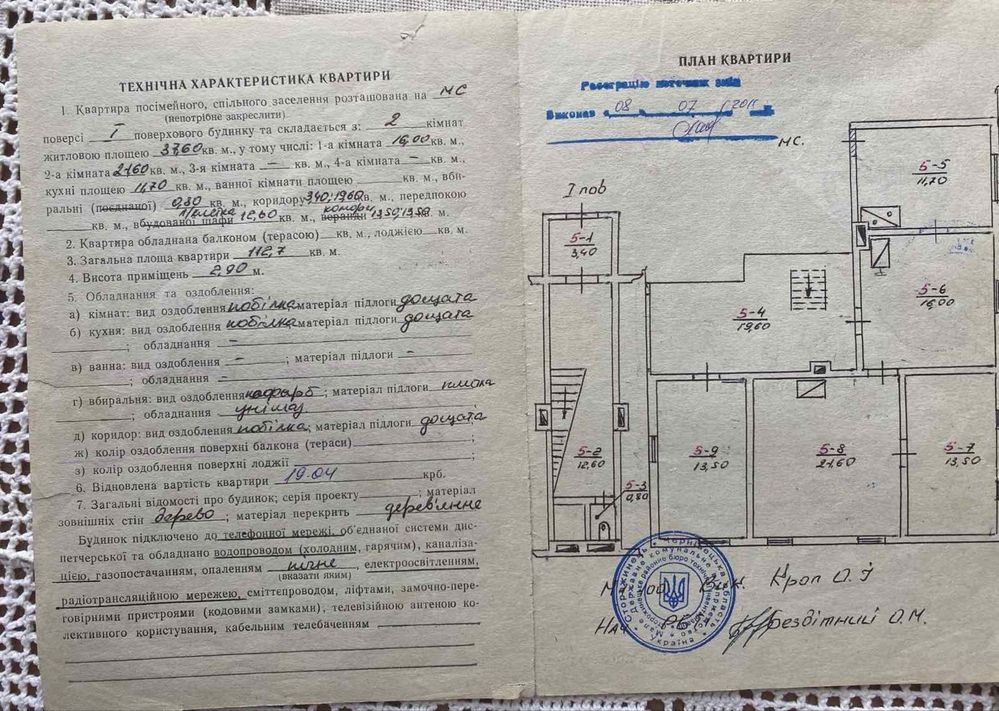 ТЕХНІЧНА ХАРАКТЕРИСТИКА КВАРТИРИ
1. Квартира посімейного, спільного заселення розташована на МС
(непотрібне закреслити)
поверсі I поверхового будинку та складається з: 2 кімнат
житловою площею 37,60 кв. м., у тому числі: 1-а кімната 16,00 кв. м.,
2-а кімната 21,60 кв. м., 3-я кімната — кв. м., 4-а кімната — кв. м.,
кухні площею 11,70 кв. м., ванної кімнати площею кв. м., вби-
ральні (поєднаної) 0,80 кв. м., коридору 3,40; 19,60 кв. м., передпокою
кв. м., вбудованої шафи 12,60 кв. м., веранди 13,50; 13,50 кв. м.
2. Квартира обладнана балконом (терасою) кв. м., лоджією кв. м.
3. Загальна площа квартири 112,7 кв. м.
4. Висота приміщень 2,90 м.
5. Обладнання та оздоблення:
а) кімнат: вид оздоблення побілка, матеріал підлоги дощата
б) кухня: вид оздоблення побілка, матеріал підлоги дощата
; обладнання —
в) ванна: вид оздоблення — ; матеріал підлоги —
; обладнання —
г) вбиральня: вид оздоблення ; матеріал підлоги плитка
; обладнання унітаз
д) коридор: вид оздоблення побілка; матеріал підлоги дощата
ж) колір оздоблення поверхні балкона (тераси) ;
з) колір оздоблення поверхні лоджії ;
6. Відновлена вартість квартири 1904 крб.
7. Загальні відомості про будинок; серія проекту ; матеріал
зовнішніх стін дерево ; матеріал перекрить дерев'янне
Будинок підключено до телефонної мережі, об'єднаної системи дис-
петчерської та обладнано водопроводом (холодним, гарячим), каналіза-
цією, газопостачанням, опаленням пічне , електроосвітленням,
(вказати яким)
радіотрансляційною мережею, сміттепроводом, ліфтами, замочно-пере-
говірними пристроями (кодовими замками), телевізійною антеною ко-
лективного користування, кабельним телебаченням
ПЛАН КВАРТИРИ
Реєстрацію поточних змін
Виконав 08 07 2011
МС.
I пов
5-5
11,70
5-1
3,40
5-6
16,00
5-4
19,60
5-2
12,60
5-3
0,80
5-9
13,50
5-8
21,60
5-7
13,50
Вик. Кроп О.Я
Нач РБТІ Бездітний О.М.